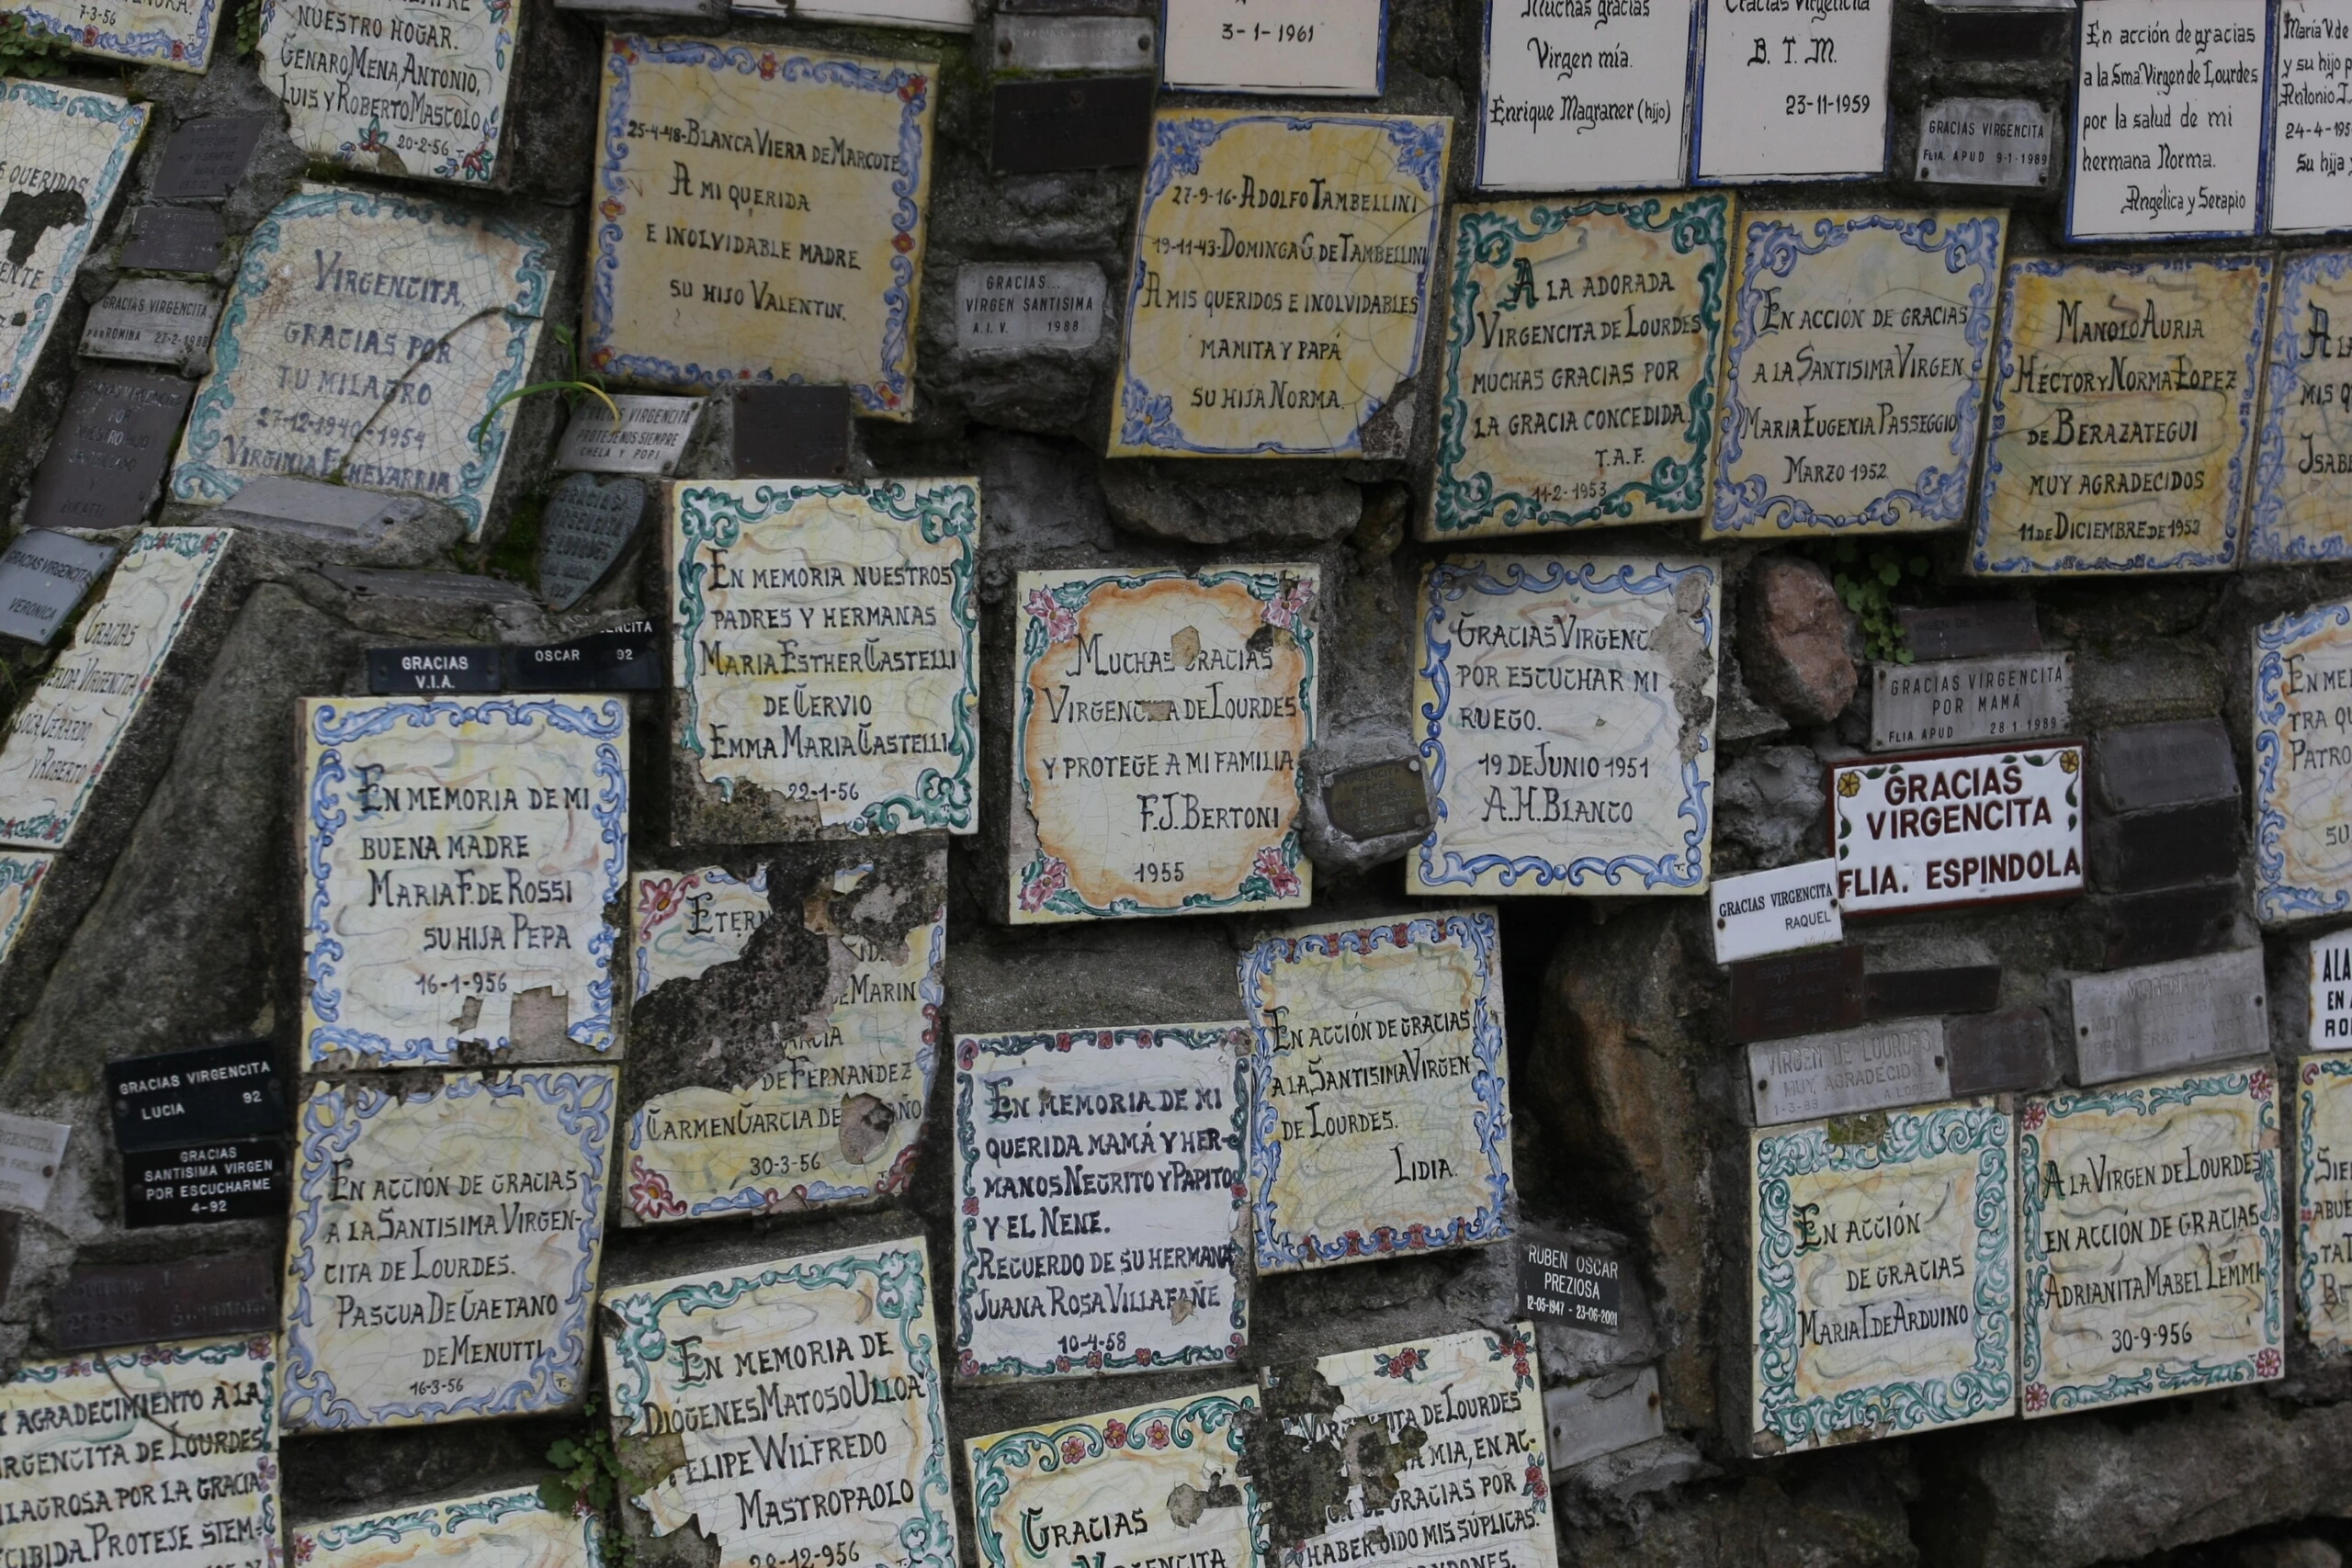 7-3-56
NUESTRO HOGAR.
GENARO MENA, ANTONIO,
LUIS Y ROBERTO MASCOLO
20-2-56
QUERIDOS
GRACIAS VIRGENCITA
POR ROMINA 27-2-1988
VIRGENCITA,
GRACIAS POR
TU MILAGRO
27-12-1940-1954
VIRGINIA ECHEVARRIA
25-4-48-BLANCA VIERA DE MARCOTE
A MI QUERIDA
E INOLVIDABLE MADRE
SU HIJO VALENTIN.
GRACIAS VIRGENCITA
PROTEJENOS SIEMPRE
CHELA Y POPI
GRACIAS...
VIRGEN SANTISIMA
A.I.V. 1988
3-1-1961
27-9-16-ADOLFO TAMBELLINI
19-11-43-DOMINGA G. DE TAMBELLINI
A MIS QUERIDOS E INOLVIDABLES
MAMITA Y PAPÁ
SU HIJA NORMA.
Muchas gracias
Virgen mía.
Enrique Magraner (hijo)
Gracias Virgencita
B. T. M.
23-11-1959
GRACIAS VIRGENCITA
FLIA. APUD 9-1-1989
En acción de gracias
a la Sma Virgen de Lourdes
por la salud de mi
hermana Norma.
Angélica y Serapio
María V. de
y su hijo
Antonio
24-4-195
Su hija
A LA ADORADA
VIRGENCITA DE LOURDES
MUCHAS GRACIAS POR
LA GRACIA CONCEDIDA.
T.A.F.
11-2-1953
EN ACCIÓN DE GRACIAS
A LA SANTISIMA VIRGEN
MARIA EUGENIA PASSEGGIO
MARZO 1952
MANOLO AURIA
HÉCTOR Y NORMA LOPEZ
DE BERAZATEGUI
MUY AGRADECIDOS
11 DE DICIEMBRE DE 1953
MIS
GRACIAS VIRGENCITA
VERONICA
GRACIAS
VIRGENCITA
GERARDO
Y ROBERTO
GRACIAS
VIRGENCITA
DE LOURDES
GRACIAS
V.I.A.
OSCAR 92
EN MEMORIA NUESTROS
PADRES Y HERMANAS
MARIA ESTHER CASTELLI
DE CERVIO
EMMA MARIA CASTELLI
22-1-56
MUCHAS GRACIAS
VIRGENCITA DE LOURDES
Y PROTEGE A MI FAMILIA
F.J. BERTONI
1955
GRACIAS VIRGENC
POR ESCUCHAR MI
RUEGO.
19 DE JUNIO 1951
A.H. BLANCO
GRACIAS VIRGENCITA
POR MAMÁ
FLIA. APUD 28-1-1989
GRACIAS
VIRGENCITA
FLIA. ESPINDOLA
GRACIAS VIRGENCITA
RAQUEL
EN MEMORIA DE MI
BUENA MADRE
MARIA F. DE ROSSI
SU HIJA PEPA
16-1-956
ETERN
MARIN
DE FERNANDEZ
CARMEN GARCIA DE
30-3-56
EN ACCIÓN DE GRACIAS
A LA SANTISIMA VIRGEN
DE LOURDES.
LIDIA.
EN MEMORIA DE MI
QUERIDA MAMÁ Y HER-
MANOS NEGRITO Y PAPITO
Y EL NENE.
RECUERDO DE SU HERMANA
JUANA ROSA VILLAFAÑE
10-4-58
GRACIAS VIRGENCITA
LUCIA 92
GRACIAS
SANTISIMA VIRGEN
POR ESCUCHARME
4-92
EN ACCIÓN DE GRACIAS
A LA SANTISIMA VIRGEN-
CITA DE LOURDES.
PASCUA DE GAETANO
DE MENUTTI
16-3-56
VIRGEN DE LOURDES
MUY AGRADECIDO
1-3-89 A LOPEZ
RUBEN OSCAR
PREZIOSA
12-05-1947 - 23-06-2001
EN ACCIÓN
DE GRACIAS
MARIA I. DE ARDUINO
A LA VIRGEN DE LOURDES
EN ACCIÓN DE GRACIAS
ADRIANITA MABEL LEMMI
30-9-956
AGRADECIMIENTO A LA
VIRGENCITA DE LOURDES
MILAGROSA POR LA GRACIA
CIBIDA. PROTEJE SIEM-
EN MEMORIA DE
DIÓGENES MATOSO ULLOA
FELIPE WILFREDO
MASTROPAOLO
28-12-956
GRACIAS
VIRGENCITA
VIRGENCITA DE LOURDES
MIA, EN AC-
GRACIAS POR
HABER OIDO MIS SÚPLICAS.